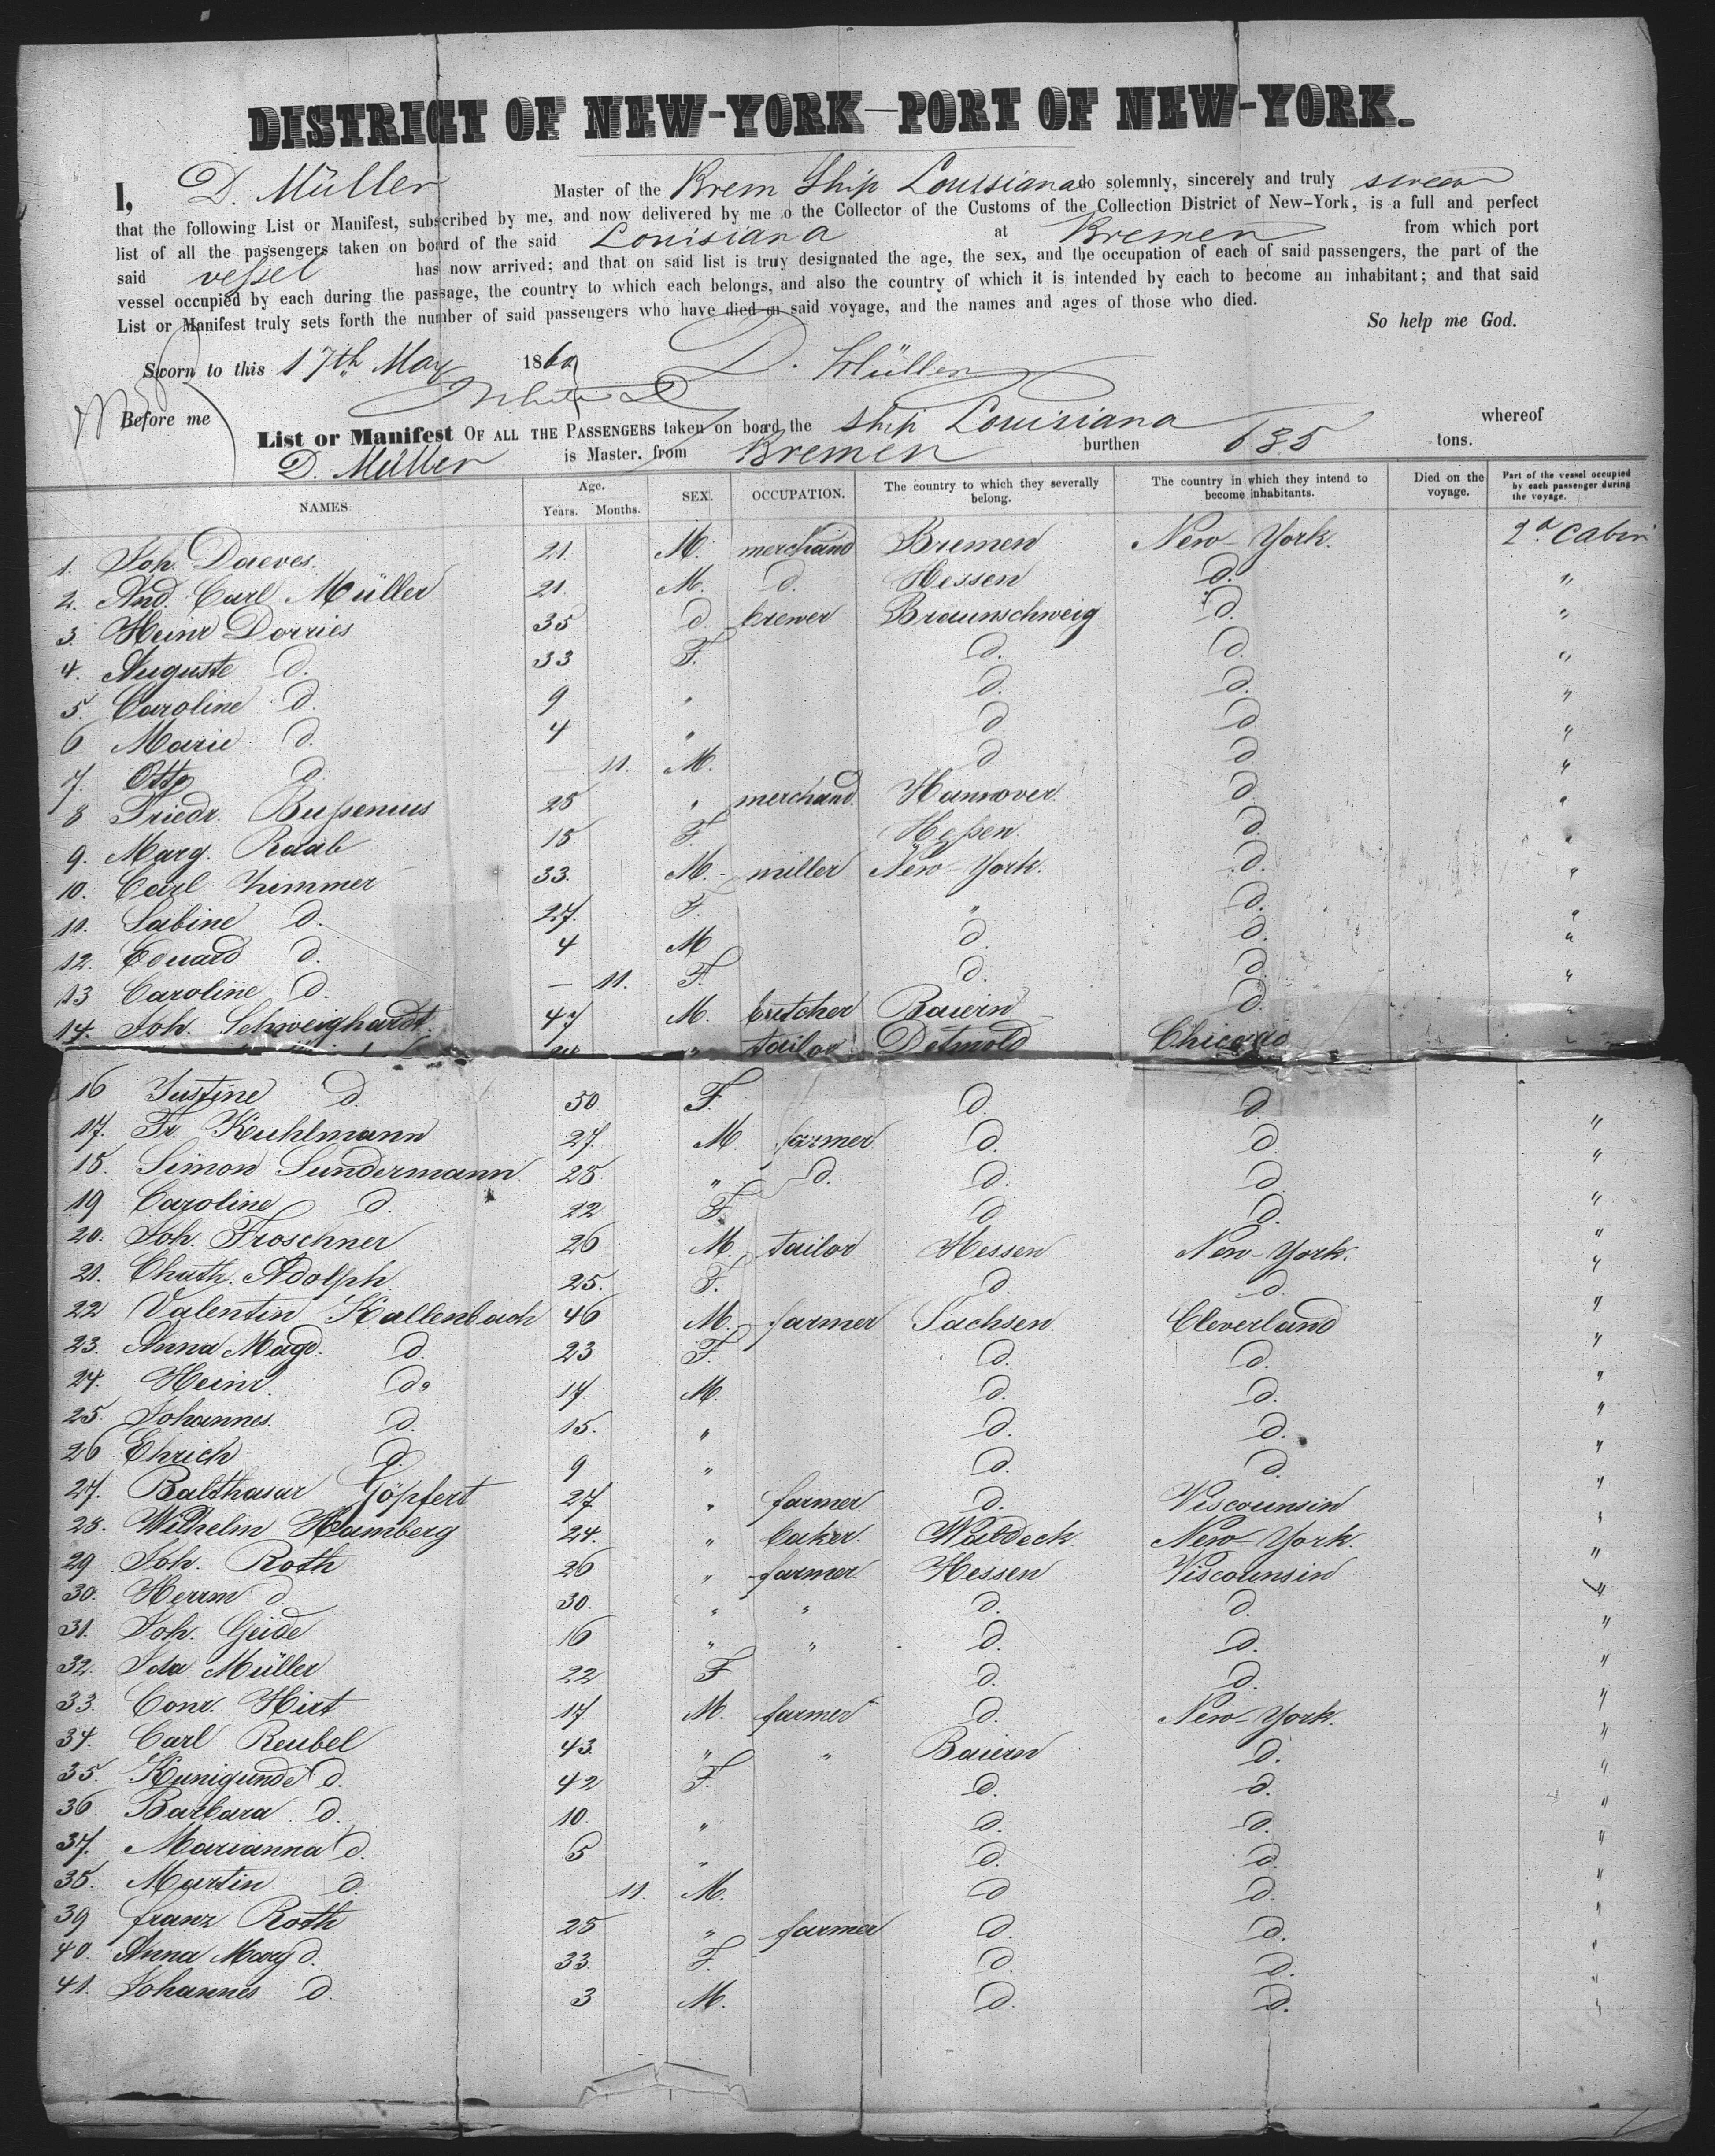 DISTRICT OF NEW-YORK—PORT OF NEW-YORK.
I, D. Müller Master of the Brem Ship Louisiana do solemnly, sincerely and truly swear
that the following List or Manifest, subscribed by me, and now delivered by me to the Collector of the Customs of the Collection District of New-York, is a full and perfect
list of all the passengers taken on board of the said Louisiana at Bremen from which port
said vessel has now arrived; and that on said list is truly designated the age, the sex, and the occupation of each of said passengers, the part of the
vessel occupied by each during the passage, the country to which each belongs, and also the country of which it is intended by each to become an inhabitant; and that said
List or Manifest truly sets forth the number of said passengers who have died on said voyage, and the names and ages of those who died.
So help me God.
Sworn to this 17th May 1860 D. Müller
Before me
List or Manifest OF ALL THE PASSENGERS taken on board the ship Louisiana whereof
D. Müller is Master, from Bremen burthen 635 tons.
NAMES. Age. Years. Months. SEX. OCCUPATION. The country to which they severally belong. The country in which they intend to become inhabitants. Died on the voyage. Part of the vessel occupied by each passenger during the voyage.
1. Joh. Daeves. 21. M. merchand Bremen New-York. 2d Cabin
2. And. Carl Müller 21. M. d. Hessen d. "
3. Heinr Dorries 35 d. brewer Braunschweig d. "
4. Auguste d. 33 F. d. d. "
5. Caroline d. 9 " d. d. "
6 Marie d. 4 " d d "
7. Otto d. — 11. M. d d "
8 Friedr. Bußenius 28 " merchand. Hannover. d "
9. Marg. Raab 18 F. Heßen. d. "
10. Carl Zimmer 33. M. miller New-York. d. "
11. Sabine d. 27. F. " d. "
12. Eduard d. 4 M d. d. "
13 Caroline d. — 11. F. d. d "
14. Joh. Schweighardt. 47 M. butcher Baiern d. "
" tailor Detmold Chicago "
16 Justine d. 30 F. d. d.
17. Fr. Kuhlmann 27. M farmer. d. d. "
18. Simon Sundermann. 28. " d. d. d. "
19 Caroline d. 22 F. d d. "
20. Joh. Froschner 26 M. tailor Hessen New-York. "
21. Chath. Adolph 25. F. d. d. "
22 Valentin Kallenbach 46 M. farmer Sachsen. Cleverland "
23. Anna Magd. d. 23 F. d. d. "
24. Heinr. d. 17 M. d. d. "
25. Johannes. d. 15. " d. d. "
26 Ehrich d. 9 " d. d. "
27. Balthasar Göpfert 27 " farmer. d. Viscounsin "
28. Wilhelm Hamberg 24. " baker. Waldeck. New-York. "
29 Joh. Roth 26 " farmer. Hessen Viscounsin "
30. Herrm d. 30. " " d. d. "
31. Joh. Geide 16 " " d. d. "
32. Ida Müller 22 F d. d. "
33. Conr. Hirt 17. M. farmer d. New-York. "
34. Carl Reubel 43 " " Baiern d. "
35. Kunigunde d. 42 F. d. d. "
36 Barbara d. 10. " d. d. "
37. Marianna d. 5 " d. d. "
38. Martin d. 11. M. d d. "
39 franz Roth 28 " farmer d. d. "
40. Anna Marg d. 33. F. d. d. "
41. Johannes d. 3 M. d. d. "